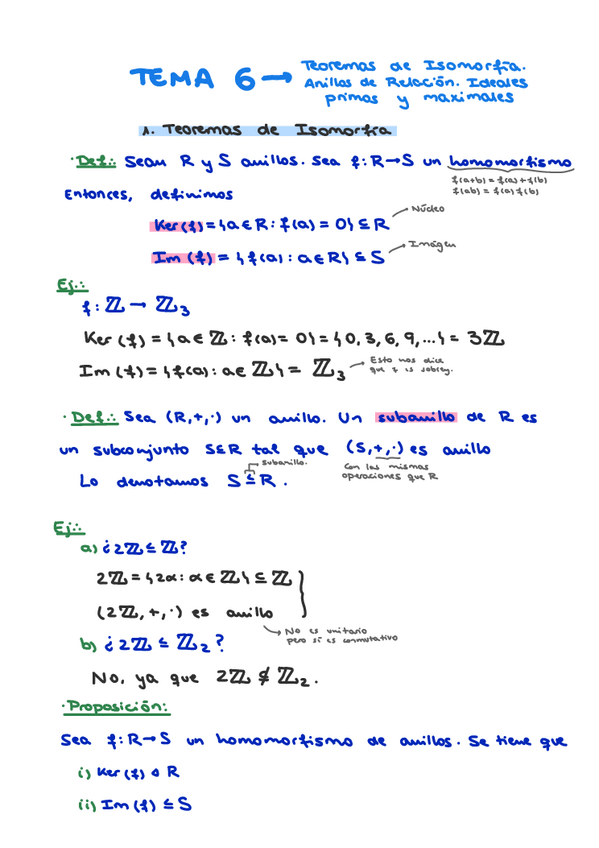 TEMA 6 → Teoremas de Isomorfía.
Anillos de Relación. Ideales
primos y maximales
1. Teoremas de Isomorfía
· Def.: Sean R y S anillos. Sea f: R→S un homomorfismo
f(a+b) = f(a)+f(b)
f(ab) = f(a)f(b)
Entonces, definimos
Ker(f) = {a ∈ R : f(a) = 0} ⊆ R → Núcleo
Im(f) = {f(a) : a ∈ R} ⊆ S → Imágen
Ej.:
f: ℤ → ℤ₃
Ker(f) = {a ∈ ℤ : f(a) = 0} = {0, 3, 6, 9, ...} = 3ℤ
Im(f) = {f(a) : a ∈ ℤ} = ℤ₃ → Esto nos dice
que f es sobrey.
· Def.: Sea (R,+,·) un anillo. Un subanillo de R es
un subconjunto S⊆R tal que (S,+,·) es anillo
Con las mismas
operaciones que R
subanillo.
Lo denotamos S ≤ R.
Ej.:
a) ¿2ℤ ≤ ℤ?
2ℤ = {2α : α ∈ ℤ} ⊆ ℤ
(2ℤ, +, ·) es anillo
→ No es unitario
pero sí es conmutativo
b) ¿2ℤ ≤ ℤ₂?
No, ya que 2ℤ ⊈ ℤ₂.
· Proposición:
Sea f: R→S un homomorfismo de anillos. Se tiene que
i) Ker(f) ⊲ R
ii) Im(f) ≤ S